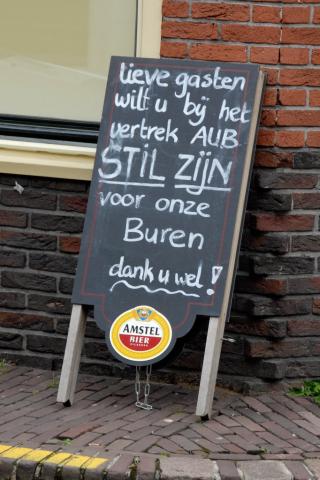 lieve gasten
wilt u bij het
vertrek AUB
STIL ZIJN
voor onze
Buren
dank u wel!
AMSTEL
BIER